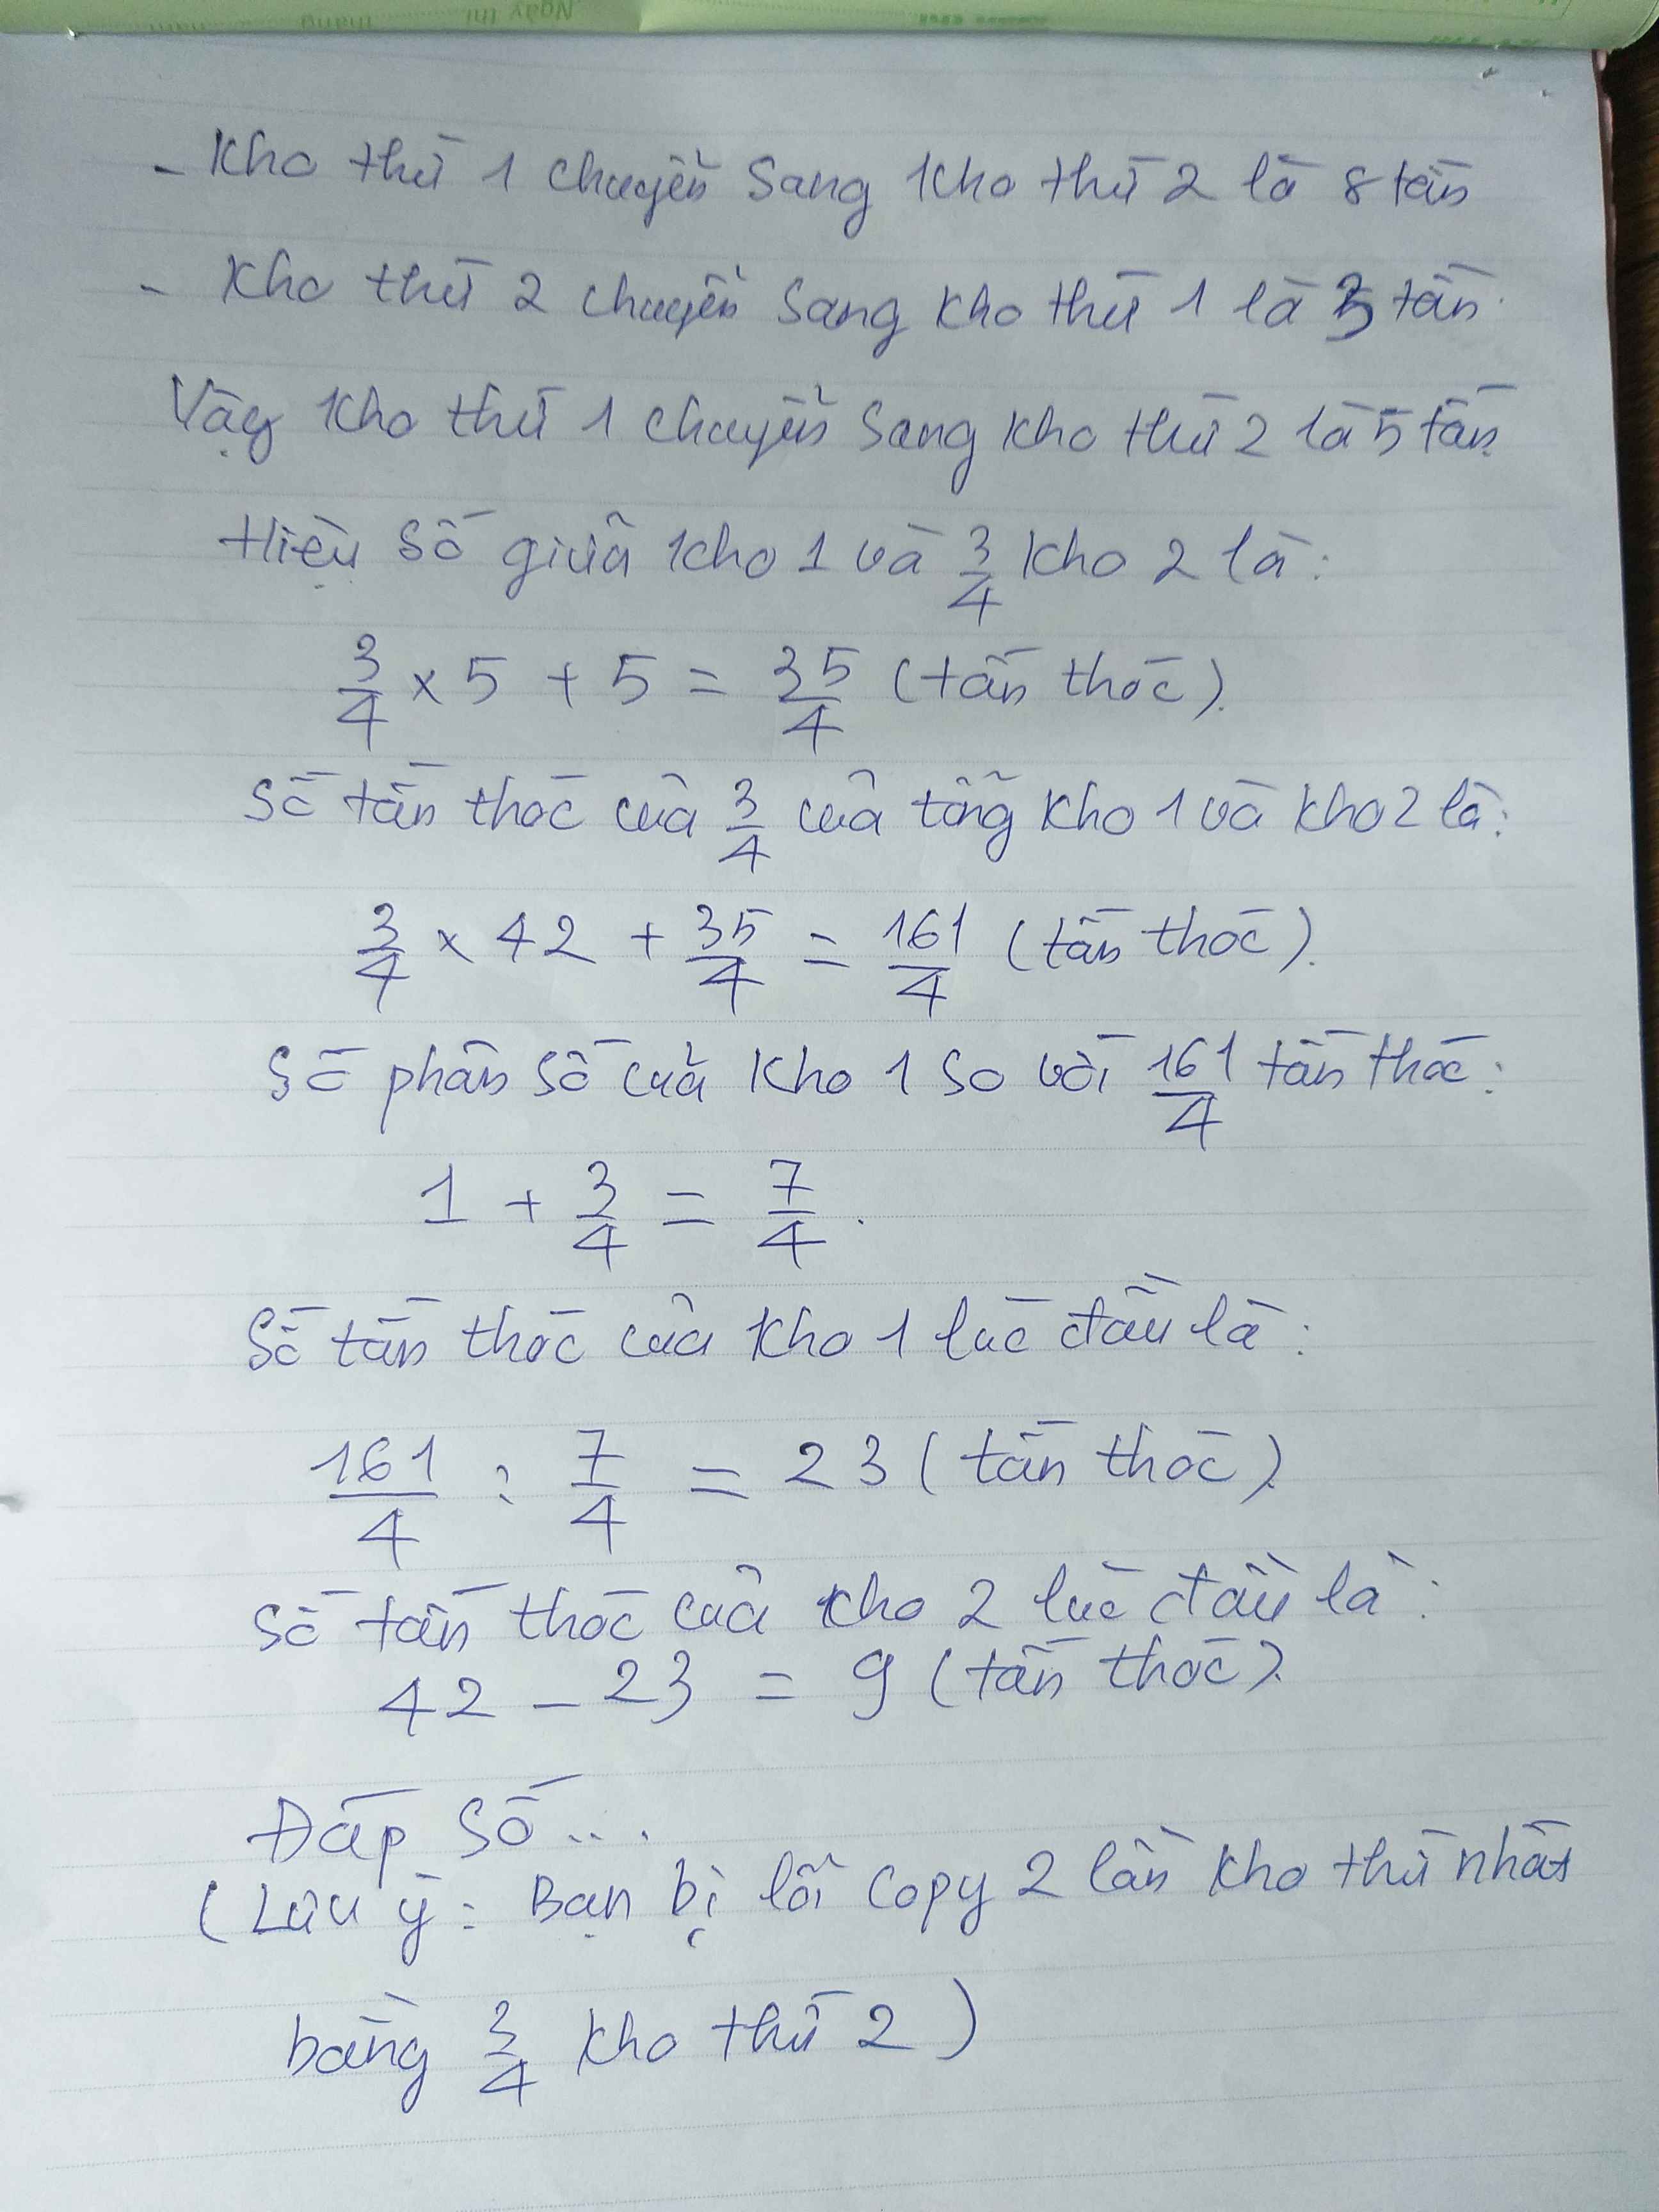 Ngày thi tháng năm
- Kho thứ 1 chuyển sang kho thứ 2 là 8 tấn
- Kho thứ 2 chuyển sang kho thứ 1 là 3 tấn.
Vậy kho thứ 1 chuyển sang kho thứ 2 là 5 tấn.
Hiệu số giữa kho 1 và 3/4 kho 2 là:
3/4 × 5 + 5 = 35/4 (tấn thóc).
Số tấn thóc của 3/4 của tổng kho 1 và kho 2 là:
3/4 × 42 + 35/4 = 161/4 (tấn thóc).
Số phân số của kho 1 so với 161/4 tấn thóc:
1 + 3/4 = 7/4.
Số tấn thóc của kho 1 lúc đầu là:
161/4 : 7/4 = 23 (tấn thóc).
Số tấn thóc của kho 2 lúc đầu là:
42 - 23 = 9 (tấn thóc).
Đáp số...
(Lưu ý: Bạn bị lỗi copy 2 lần kho thứ nhất
bằng 3/4 kho thứ 2)